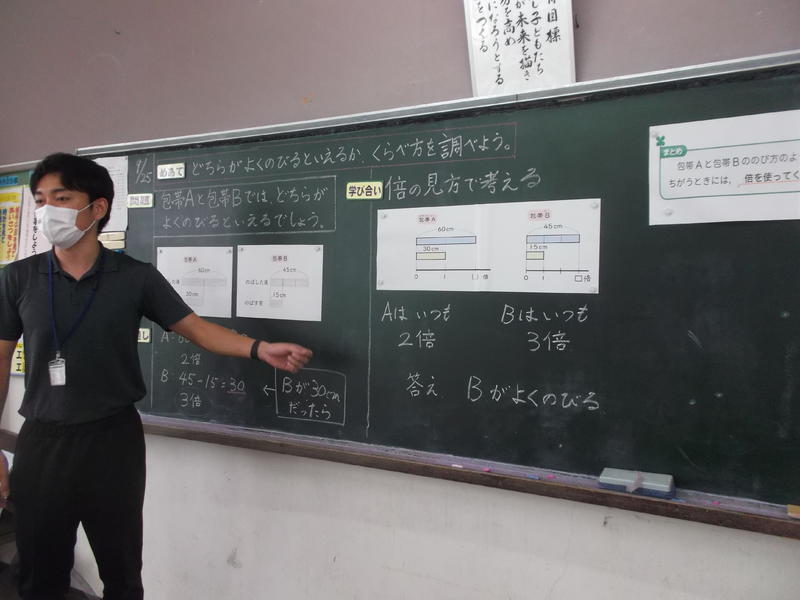 目標
し子どもたち
が未来を描き
力を高め
になろうとする
をつくる
9/25
めあて どちらがよくのびるといえるか、くらべ方を調べよう。
問題
包帯Aと包帯Bでは、どちらが
よくのびるといえるでしょう。
包帯A
60cm
のばした後
30cm
包帯B
45cm
のばした後
15cm
のばす前
A
2倍
B 45-15=30
3倍
←Bが30cm
だったら
学び合い 倍の見方で考える
包帯A
60cm
30cm
0 1 □倍
包帯B
45cm
15cm
0 1 □倍
Aはいつも
2倍
Bはいつも
3倍
答え Bがよくのびる
まとめ
包帯Aと包帯Bののび方のよ
ちがうときには、倍を使ってく